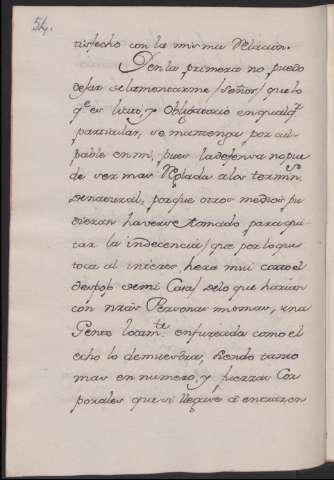 54.
tisfecho con la misma Relacion.
Den la primera no puedo
dejar de lamentarme /señor/ que lo
q.e es licito, y obligatorio en qualq.r
particular, se mantenga por cul-
pable en mi, pues la defensa no pue
de ser mas Reglada a los termin.os
de natural, porque otros medios pu
dieran haverse tomado para qui
tar la indecencia/ que por lo que
toca al interes, hera mui corto el
despojo de mi Casa/ de lo que harian
con nr̃as Personas mismas, una
Gente locam.te enfurecida como el
echo lo demuestra, siendo tanto
mas en numero, y fuerzas Cor
porales que si llegase a entrar en